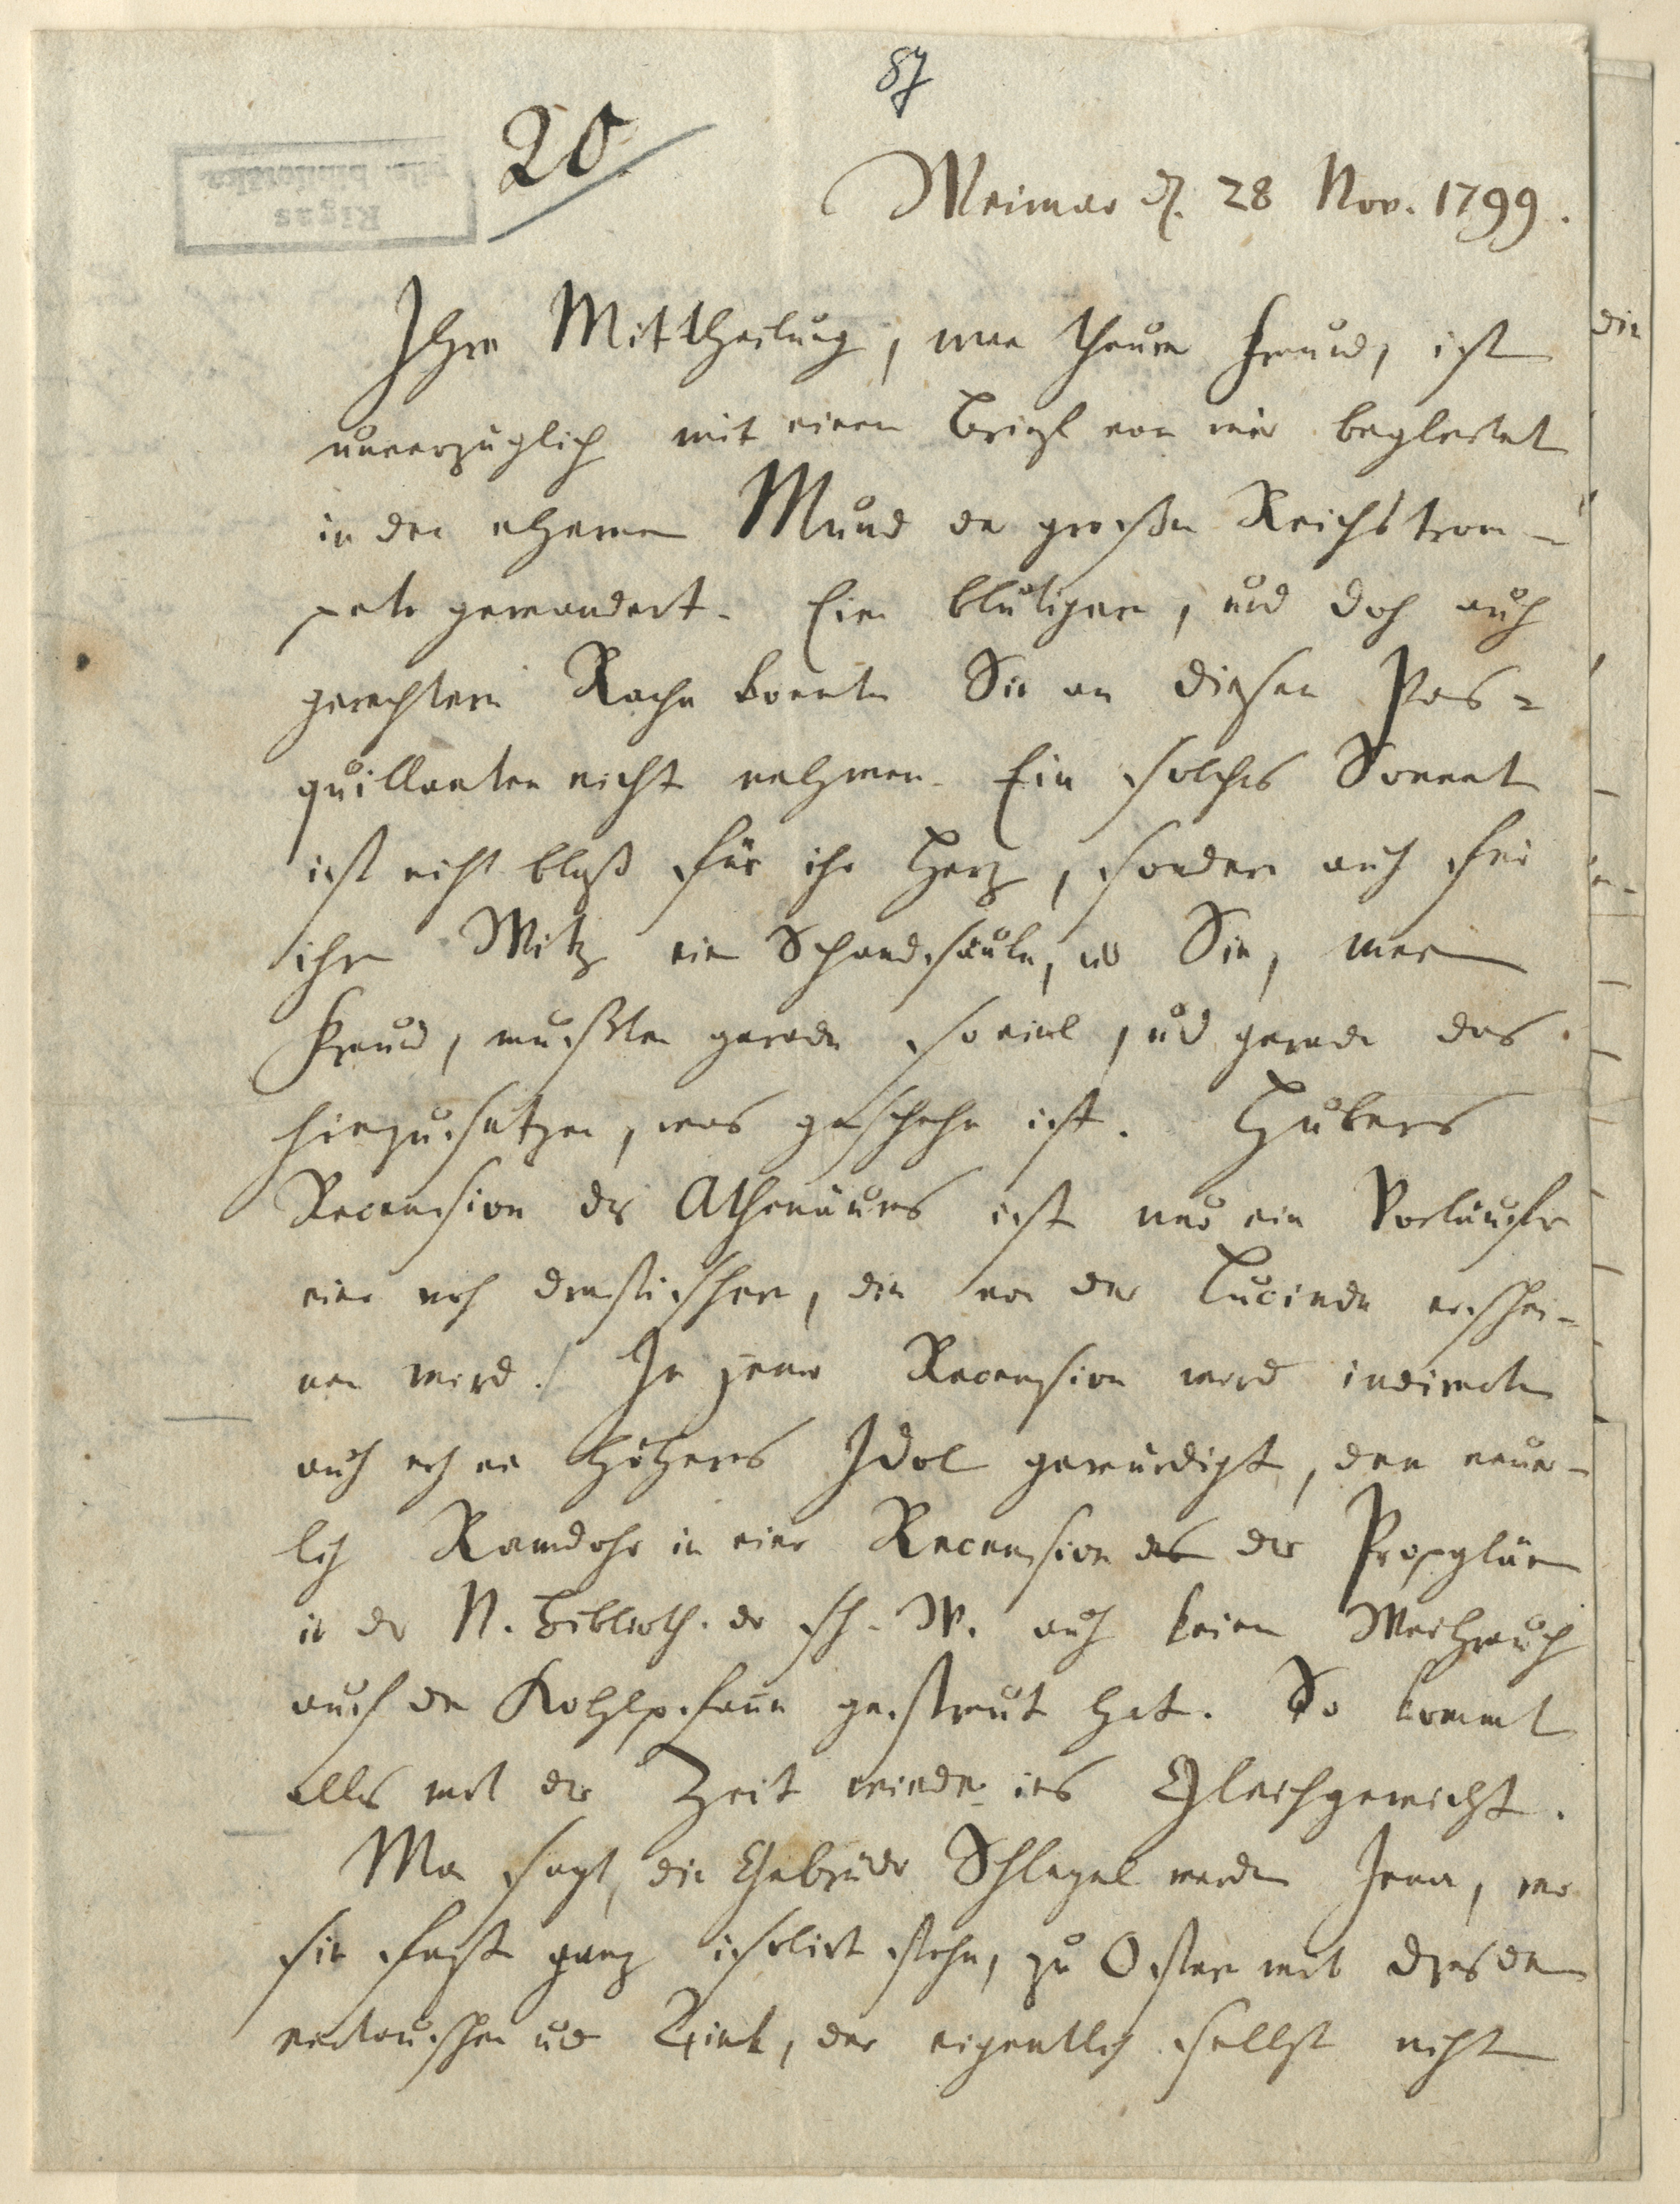 87
20
Rigas
pils. bibliotēka
Weimar d. 28 Nov. 1799.
Ihre Mittheilung, mein theurer Freund, ist
unverzüglich mit einem Briefe von mir begleitet
in den ehernen Mund der großen Reichstrom-
pete gewandert. Eine blutigere, und doch auch
gerechtere Rache konnten Sie an diesen Pas-
quillanten nicht nehmen. Ein solches Sonnet
ist nicht bloß für ihr Herz, sondern auch für
ihren Witz eine Schandsäule, und Sie, mein
Freund, mußten gerade soviel, und gerade das
hinzusetzen, was geschehn ist. Hubers
Recension des Athenäums ist nur ein Vorläufer
einer noch drastischern, die von der Lucinde erschei-
nen wird. In jener Recension wird indirecte
auch noch ein höheres Idol gewürdigt, dem neuer-
lich Ramdohr in einer Recension der Propyläen
in der N. Biblioth. der sch. W. auch keinen Weihrauch
auf die Kohlpfanne gestreut hat. So kommt
alles mit der Zeit wieder ins Gleichgewicht.
Man sagt, die Gebrüder Schlegel werden Jena, wo
sie fast ganz isolirt stehn, zu Ostern mit Dresden
vertauschen und Tiek, der eigentlich selbst nicht
die